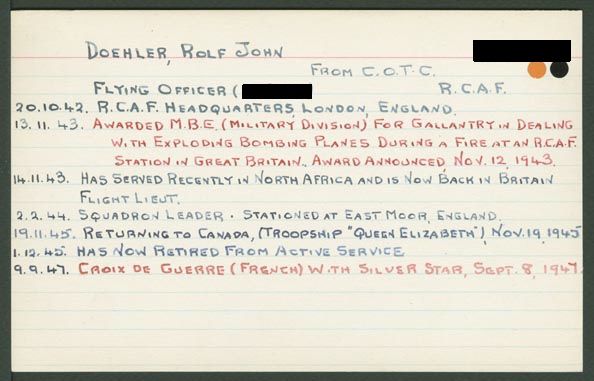 DOEHLER, ROLF JOHN
FROM C.O.T.C.
FLYING OFFICER ( R.C.A.F.
20.10.42. R.C.A.F. HEADQUARTERS, LONDON, ENGLAND.
13.11.43. AWARDED M.B.E. (MILITARY DIVISION) FOR GALLANTRY IN DEALING
WITH EXPLODING BOMBING PLANES DURING A FIRE AT AN R.C.A.F.
STATION IN GREAT BRITAIN. AWARD ANNOUNCED, NOV. 12, 1943.
14.11.43. HAS SERVED RECENTLY IN NORTH AFRICA AND IS NOW BACK IN BRITAIN
FLIGHT LIEUT.
2.2.44. SQUADRON LEADER. STATIONED AT EAST MOOR, ENGLAND.
19.11.45. RETURNING TO CANADA, (TROOPSHIP "QUEEN ELIZABETH"), NOV. 19, 1945
1.12.45. HAS NOW RETIRED FROM ACTIVE SERVICE
9.9.47. CROIX DE GUERRE (FRENCH) WITH SILVER STAR, SEPT. 8, 1947.